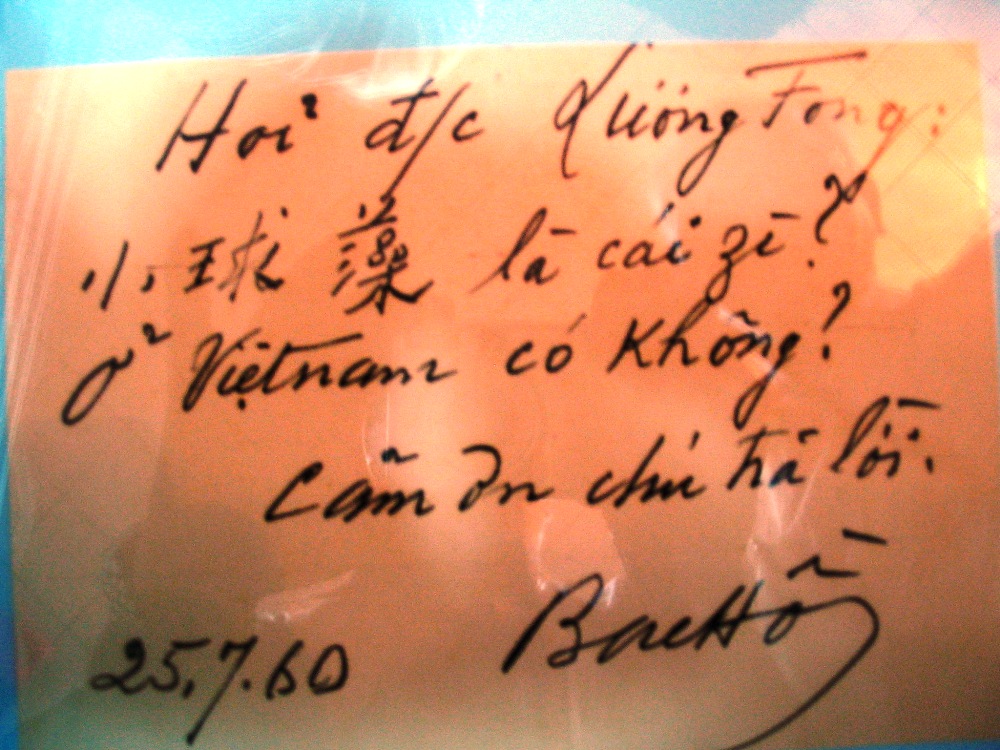 Hỏi đ/c Lương Fong:
小球藻 là cái zì?
Ở Việtnam có không?
Cảm ơn chú trả lời.
Bác Hồ
25.7.60